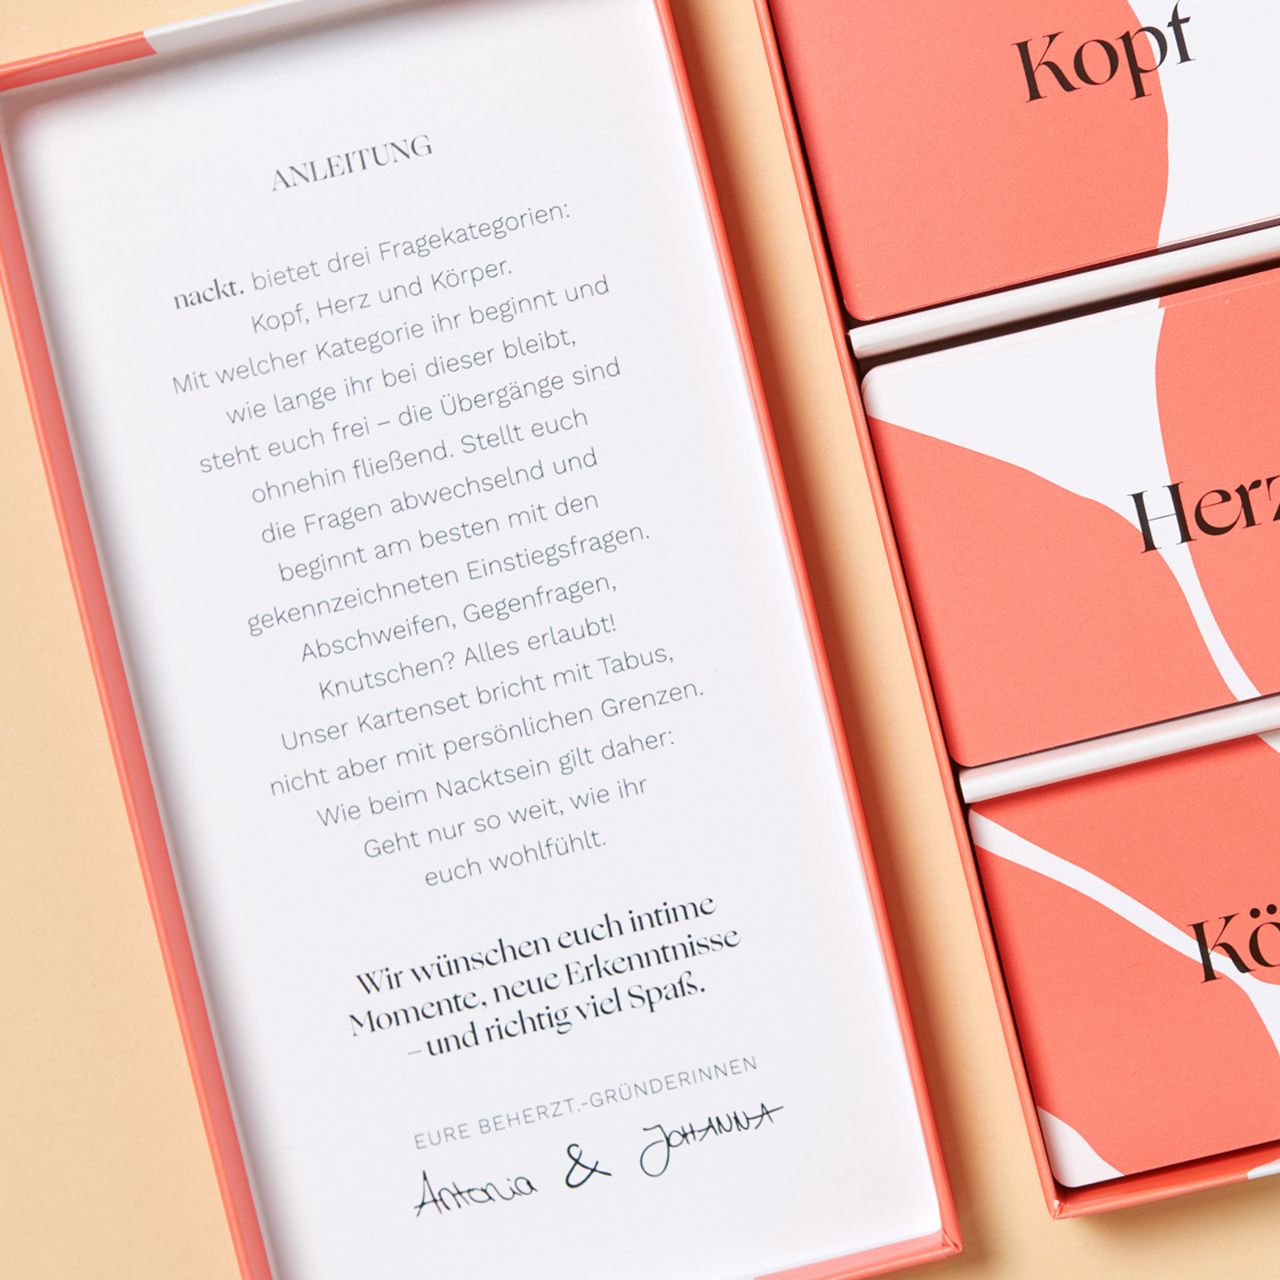 ANLEITUNG
nackt. bietet drei Fragekategorien:
Kopf, Herz und Körper.
Mit welcher Kategorie ihr beginnt und
wie lange ihr bei dieser bleibt,
steht euch frei – die Übergänge sind
ohnehin fließend. Stellt euch
die Fragen abwechselnd und
beginnt am besten mit den
gekennzeichneten Einstiegsfragen.
Abschweifen, Gegenfragen,
Knutschen? Alles erlaubt!
Unser Kartenset bricht mit Tabus,
nicht aber mit persönlichen Grenzen.
Wie beim Nacktsein gilt daher:
Geht nur so weit, wie ihr
euch wohlfühlt.
Wir wünschen euch intime
Momente, neue Erkenntnisse
– und richtig viel Spaß.
EURE BEHERZT.-GRÜNDERINNEN
Antonia & JOHANNA
Kopf
Herz
Kö